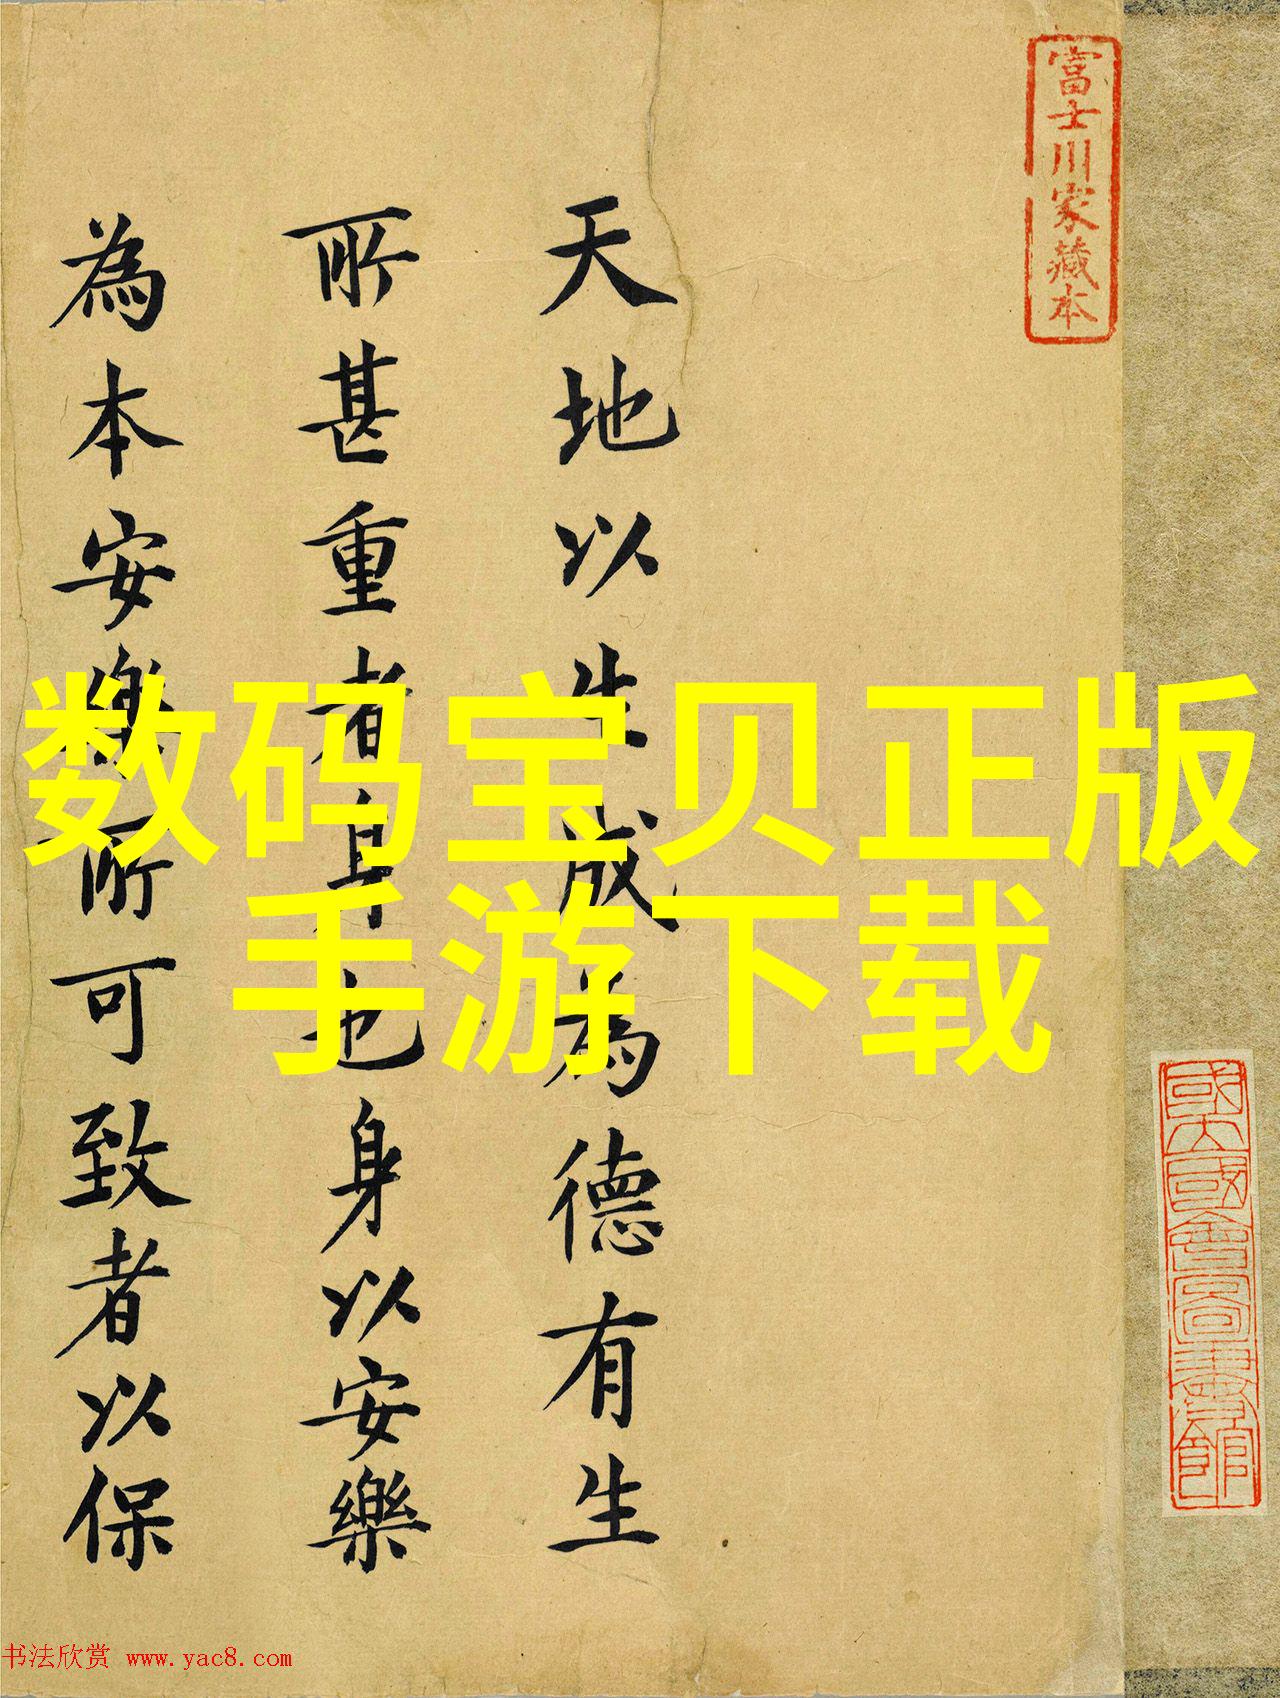 數码宝贝正版
手游下载
富士川家藏本
天地以生成為德有生
所甚重者身也身以安樂
為本安樂所可致者以保
國立國會圖書館
书法欣赏 www.yac8.com